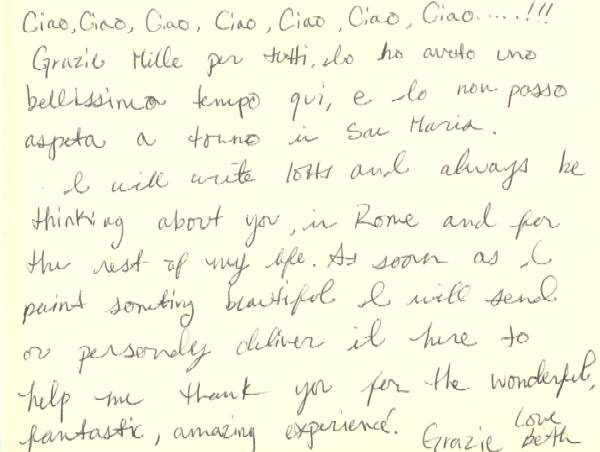 Ciao, Ciao, Ciao, Ciao, Ciao, Ciao, Ciao.....!!!
Grazie Mille per tutti, Io ho avuto uno
bellissimo tempo qui, e Io non posso
aspeta a torno in San Maria.
I will write lotts and always be
thinking about you, in Rome and for
the rest of my life. As soon as I
paint someting beautiful I will send
or personaly deliver it here to
help me thank you for the wonderful,
fantastic, amazing experience.
Grazie Love
beth